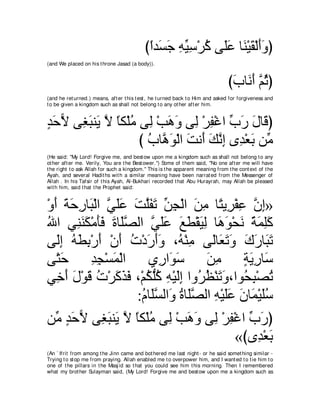 (وَأَلْقَيْنَا عَلَى كُرْسِيِّهِ جَسَداً)
(and We placed on his throne Jasad (a body)).
(ثُمَّ أَنَابَ)
(and he returned.) means, after this test, he turned back to Him and asked for forgiveness and
to be given a kingdom such as shall not belong to any other after him.
(قَالَ رَبِّ اغْفِرْ لِى وَهَبْ لِى مُلْكاً لاَّ يَنبَغِى لاًّحَدٍ
مِّن بَعْدِى إِنَّكَ أَنتَ الْوَهَّابُ )
(He said: "My Lord! Forgive me, and bestow upon me a kingdom such as shall not belong to any
other after me. Verily, You are the Bestower.") Some of them said, "No one after me will have
the right to ask Allah for such a kingdom." This is the apparent meaning from the context of the
Ayah, and several Hadiths with a similar meaning have been narrated from the Messenger of
Allah . In his Tafsir of this Ayah, Al-Bukhari recorded that Abu Hurayrah, may Allah be pleased
with him, said that the Prophet said:
«إِنَّ عِفْرِيتًا مِنَ الْجِنِّ تَفَلَّتَ عَلَيَّ الْبَارِحَةَ أَوْ
كَلِمَةً نَحْوَهَا لِيَقْطَعَ عَلَيَّ الصَّلَاةَ فَأَمْكَنَنِي اللهُ
تَبَارَكَ وَتَعَالَى مِنْهُ، وَأَرَدْتُ أَنْ أَرْبِطَهُ إِلَى
سَارِيَةٍ مِنَ سَوَارِي الْمَسْجِدِ حَتَّى
تُصْبِحُوا، وَتَنْظُرُوا إِلَيْهِ كُلُّكُمْ، فَذَكَرْتُ قَوْلَ أَخِي
سُلَيْمَانَ عَلَيْهِ الصَّلَاةُ وَالسَّلَامُ:
(رَبِّ اغْفِرْ لِى وَهَبْ لِى مُلْكاً لاَّ يَنبَغِى لاًّحَدٍ مِّن
بَعْدِى)»
(An `Ifrit from among the Jinn came and bothered me last night - or he said something similar -
Trying to stop me from praying. Allah enabled me to overpower him, and I wanted to tie him to
one of the pillars in the Masjid so that you could see him this morning. Then I remembered
what my brother Sulayman said, (My Lord! Forgive me and bestow upon me a kingdom such as